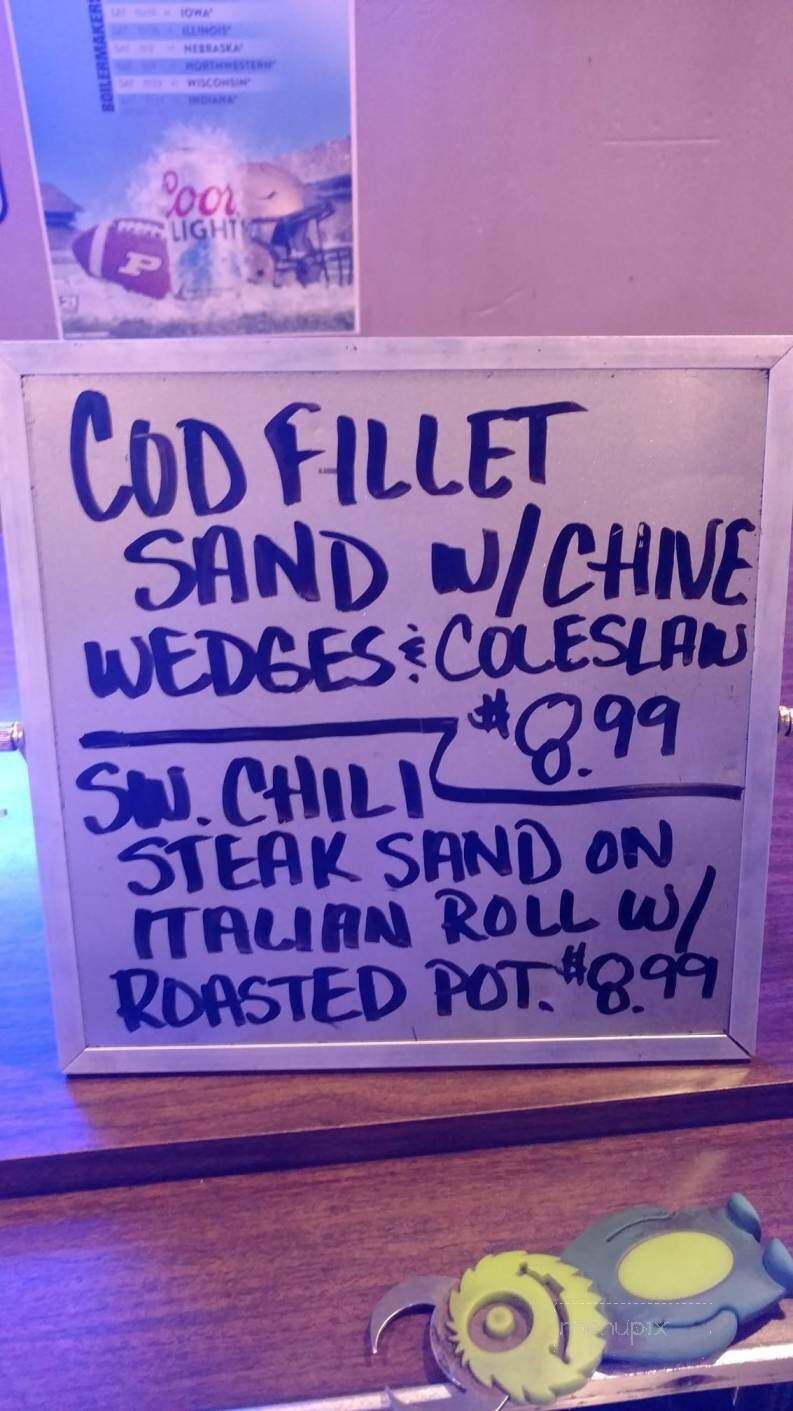 BOILERMAKERS
IOWA*
ILLINOIS*
NEBRASKA*
NORTHWESTERN*
WISCONSIN*
INDIANA*
Coor
LIGHT
P
21
COD FILLET
SAND W/CHIVE
WEDGES & COLESLAW
$8.99
SW. CHILI
STEAK SAND ON
ITALIAN ROLL W/
ROASTED POT. $8.99
menupix